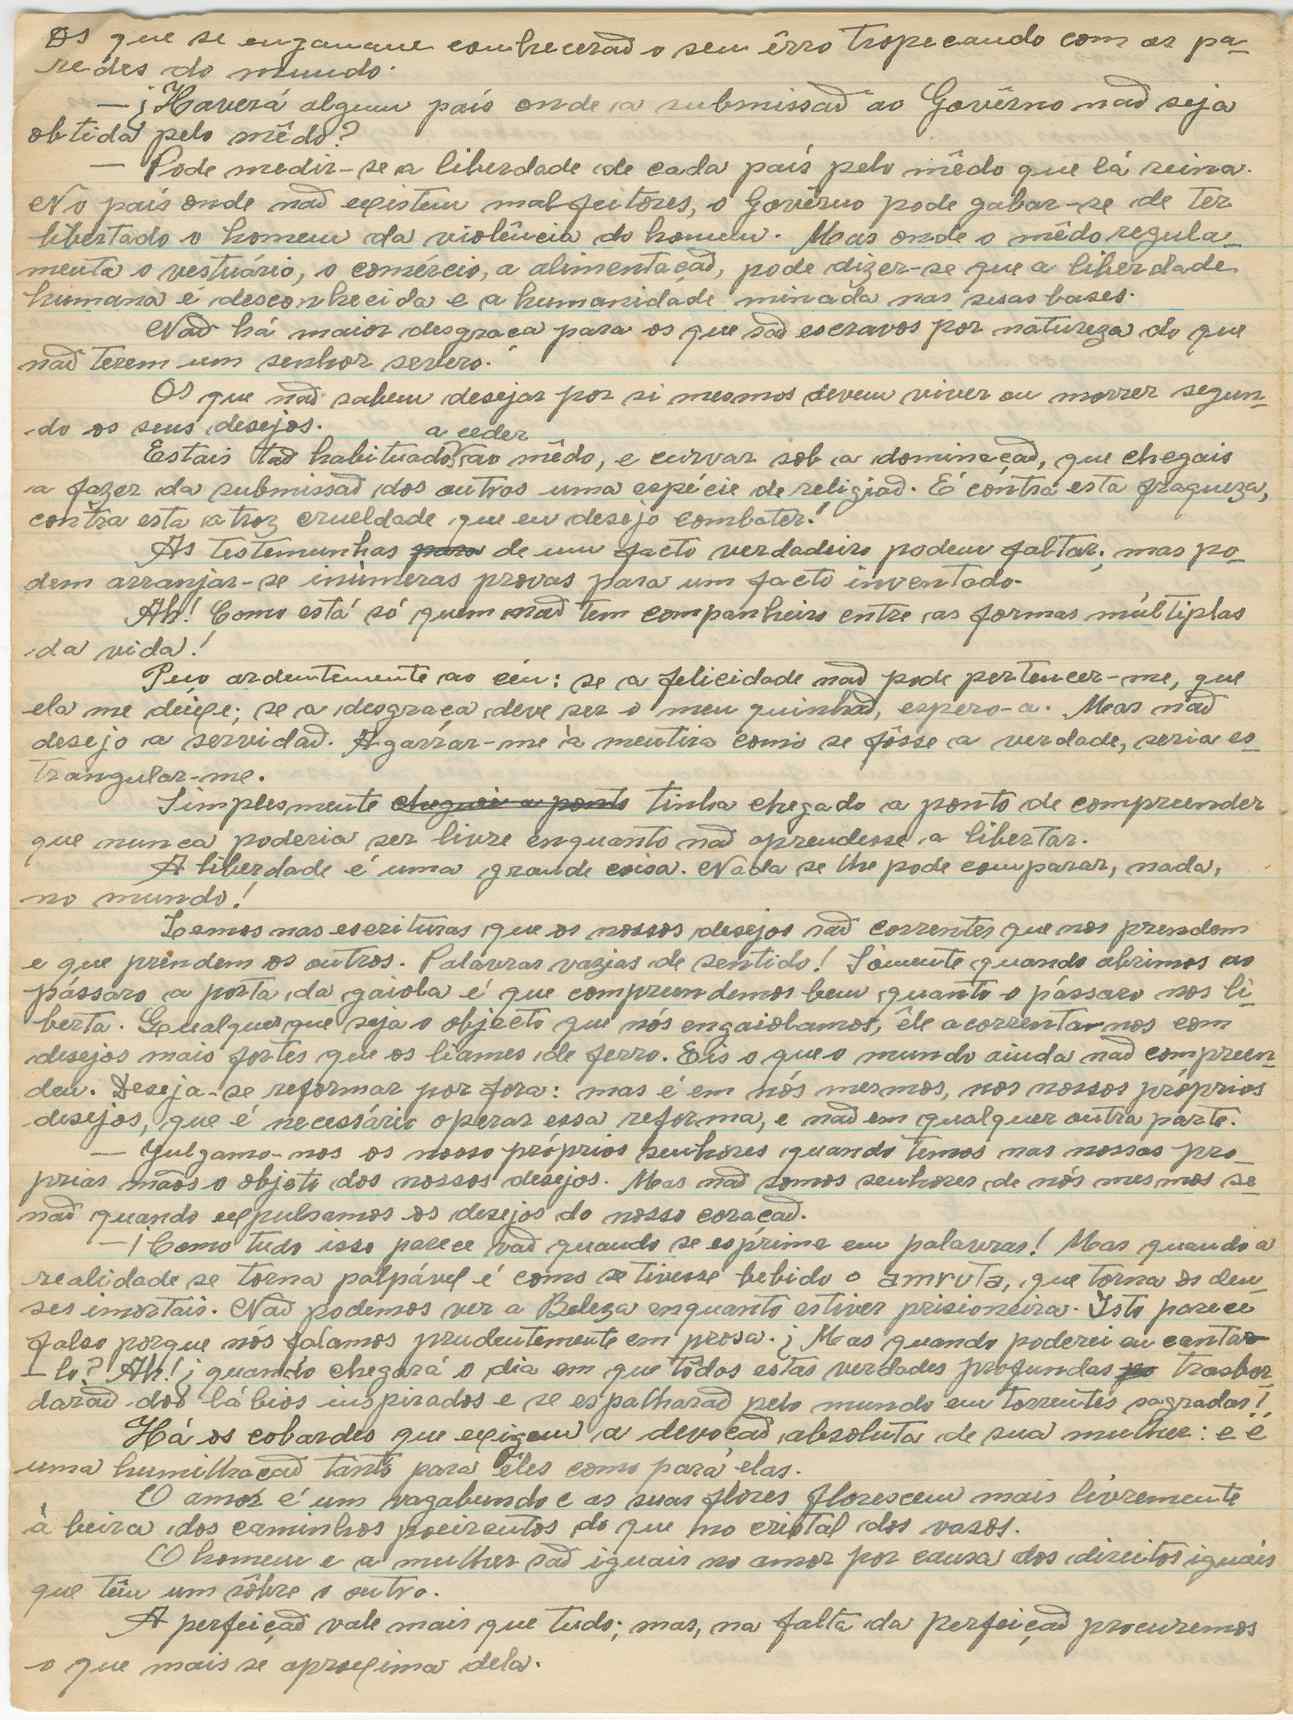 Os que se enganam conhecerão o seu êrro tropeçando com as pa-
redes do mundo.
— ¡Haverá algum país onde a submissão ao Govêrno não seja
obtida pelo mêdo?
— Pode medir-se a liberdade de cada país pelo mêdo que lá reina.
No país onde não existem malfeitores, o Govêrno pode gabar-se de ter
libertado o homem da violência do homem. Mas onde o mêdo regula-
menta o vestuário, o comércio, a alimentação, pode dizer-se que a liberdade
humana é desconhecida e a humanidade minada nas suas bases.
Não há maior desgraça para os que são escravos por natureza do que
não terem um senhor severo.
Os que não sabem desejar por si mesmos devem viver ou morrer segun-
do os seus desejos.
a ceder
Estais tão habituados ao mêdo, e curvar sob a dominação, que chegais
a fazer da submissão dos outros uma espécie de religião. É contra esta fraqueza,
contra esta atroz crueldade que eu desejo combater!
As testemunhas para de um facto verdadeiro podem faltar; mas po-
dem arranjar-se inúmeras provas para um facto inventado.
Ah! Como está só quem não tem companheiro entre as formas múltiplas
da vida!
Peço ardentemente ao céu: se a felicidade não pode pertencer-me, que
ela me deixe; se a desgraça deve ser o meu quinhão, espero-a. Mas não
desejo a servidão. Agarrar-me à mentira como se fôsse a verdade, seria es-
trangular-me.
Simplesmente cheguei a ponto tinha chegado a ponto de compreender
que nunca poderia ser livre enquanto não aprendesse a libertar.
A liberdade é uma grande coisa. Nada se lhe pode comparar, nada,
no mundo!
Lemos nas escrituras que os nossos desejos são correntes que nos prendem
e que prendem os outros. Palavras vazias de sentido! Sòmente quando abrimos ao
pássaro a porta da gaiola é que compreendemos bem quanto o pássaro nos li-
berta. Qualquer que seja o objecto que nós engaiolamos, êle acorrenta-nos com
desejos mais fortes que os liames de ferro. Eis o que o mundo ainda não compreen-
deu. Deseja-se reformar por fora: mas é em nós mesmos, nos nossos próprios
desejos, que é necessário operar essa reforma, e não em qualquer outra parte.
— Julgamo-nos os nosso próprios senhores quando temos nas nossas pró-
prias mãos o objeto dos nossos desejos. Mas não somos senhores de nós mesmos se-
não quando expulsamos os desejos do nosso coração.
— ¡Como tudo isso parece vão quando se esprime em palavras! Mas quando a
realidade se torna palpável é como se tivesse bebido o amruta, que torna os deu-
ses imortais. Não podemos ver a Beleza enquanto estiver prisioneira. Isto parece
falso porque nós falamos prudentemente em prosa. ¡Mas quando poderei eu cantar-
-lo? Ah! ¡quando chegará o dia em que todas estas verdades profundas trasbor-
darão dos lábios inspirados e se espalharão pelo mundo em torrentes sagradas!
Há os cobardes que exigem a devoção absoluta de sua mulher: e é
uma humilhação tanto para êles como para elas.
O amor é um vagabundo e as suas flores florescem mais livremente
à beira dos caminhos poeirentos do que no cristal dos vasos.
O homem e a mulher são iguais no amor por causa dos direitos iguais
que têm um sôbre o outro.
A perfeição vale mais que tudo; mas, na falta da perfeição procuremos
o que mais se aproxima dela.